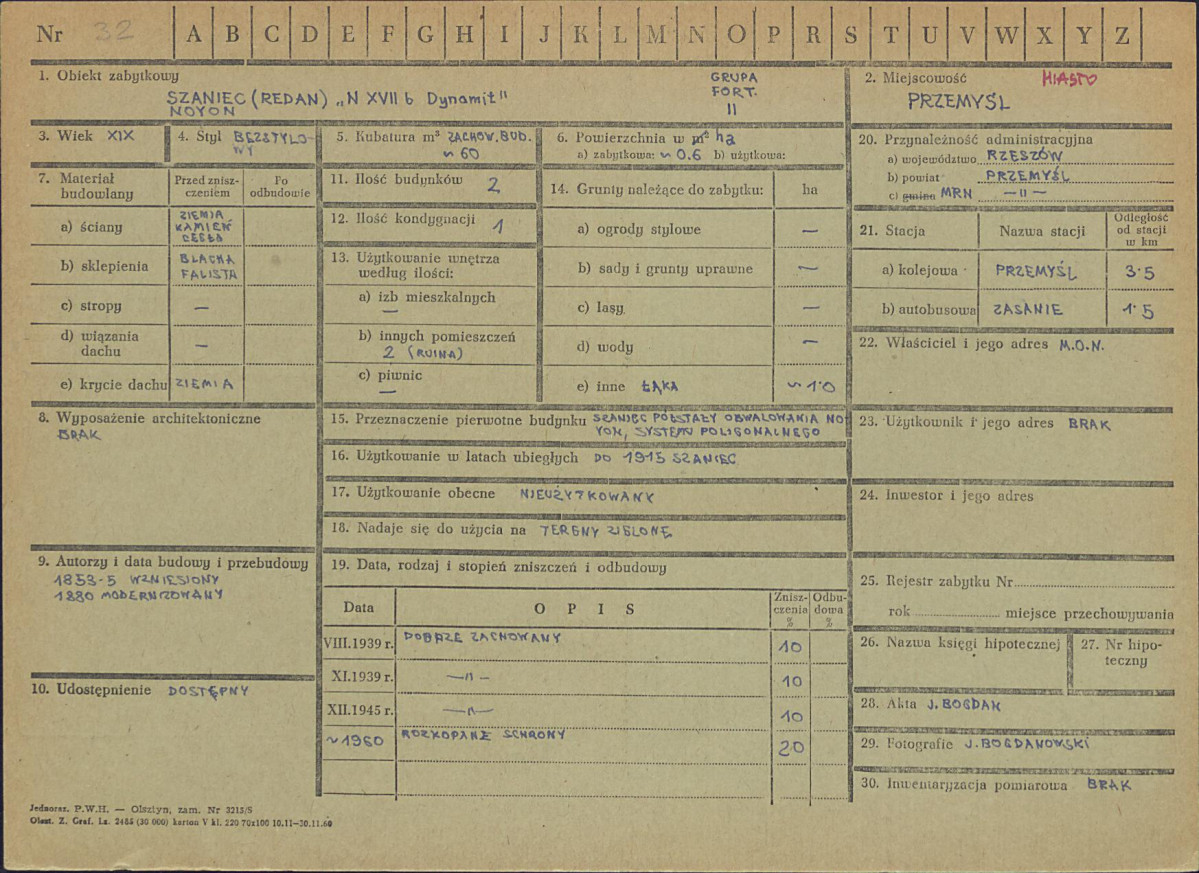 Nr 32 A B C D E F G H I J K L M N O P R S T U V W X Y Z
1. Obiekt zabytkowy
SZANIEC (REDAN) „N XVII b Dynamit"
NOYON
GRUPA
FORT.
II
2. Miejscowość MIASTO
PRZEMYŚL
3. Wiek XIX
4. Styl BEZSTYLO-
WY
5. Kubatura m³ ZACHOW. BUD.
~ 60
6. Powierzchnia w m² ha
a) zabytkowa: ~ 0.6 b) użytkowa:
20. Przynależność administracyjna
a) województwo RZESZÓW
b) powiat PRZEMYŚL
c) gmina MRN —"—
7. Materiał
budowlany
Przed znisz-
czeniem
Po
odbudowie
a) ściany ZIEMIA
KAMIEŃ
CEGŁA
b) sklepienia BLACHA
FALISTA
c) stropy —
d) wiązania
dachu —
e) krycie dachu ZIEMIA
11. Ilość budynków 2
12. Ilość kondygnacji 1
13. Użytkowanie wnętrza
według ilości:
a) izb mieszkalnych
—
b) innych pomieszczeń
2 (RUINA)
c) piwnic
—
14. Grunty należące do zabytku: ha
a) ogrody stylowe —
b) sady i grunty uprawne —
c) lasy —
d) wody —
e) inne ŁĄKA ~ 1.0
21. Stacja Nazwa stacji
Odległość
od stacji
w km
a) kolejowa PRZEMYŚL 3.5
b) autobusowa ZASANIE 1.5
22. Właściciel i jego adres M.O.N.
8. Wyposażenie architektoniczne
BRAK
15. Przeznaczenie pierwotne budynku SZANIEC PÓŁSTAŁY OBWAŁOWANIA NO
YON, SYSTEMU POLIGONALNEGO
16. Użytkowanie w latach ubiegłych DO 1915 SZANIEC
17. Użytkowanie obecne NIEUŻYTKOWANY
18. Nadaje się do użycia na TERENY ZIELONE
23. Użytkownik i jego adres BRAK
24. Inwestor i jego adres
9. Autorzy i data budowy i przebudowy
1853-5 WZNIESIONY
1880 MODERNIZOWANY
10. Udostępnienie DOSTĘPNY
19. Data, rodzaj i stopień zniszczeń i odbudowy
Data OPIS
Znisz-
czenia
%
Odbu-
dowa
%
VIII.1939 r. DOBRZE ZACHOWANY 10
XI.1939 r. —"— 10
XII.1945 r. —"— 10
~1960 ROZKOPANE SCHRONY 20
25. Rejestr zabytku Nr
rok miejsce przechowywania
26. Nazwa księgi hipotecznej
27. Nr hipo-
teczny
28. Akta J. BOGDAN
29. Fotografie J. BOGDANOWSKI
30. Inwentaryzacja pomiarowa BRAK
Jednoraz. P.W.H. — Olsztyn, zam. Nr 3213/S
Olszt. Z. Graf. Lz. 2485 (30 000) karton V kl. 220 70x100 10.11—30.11.60